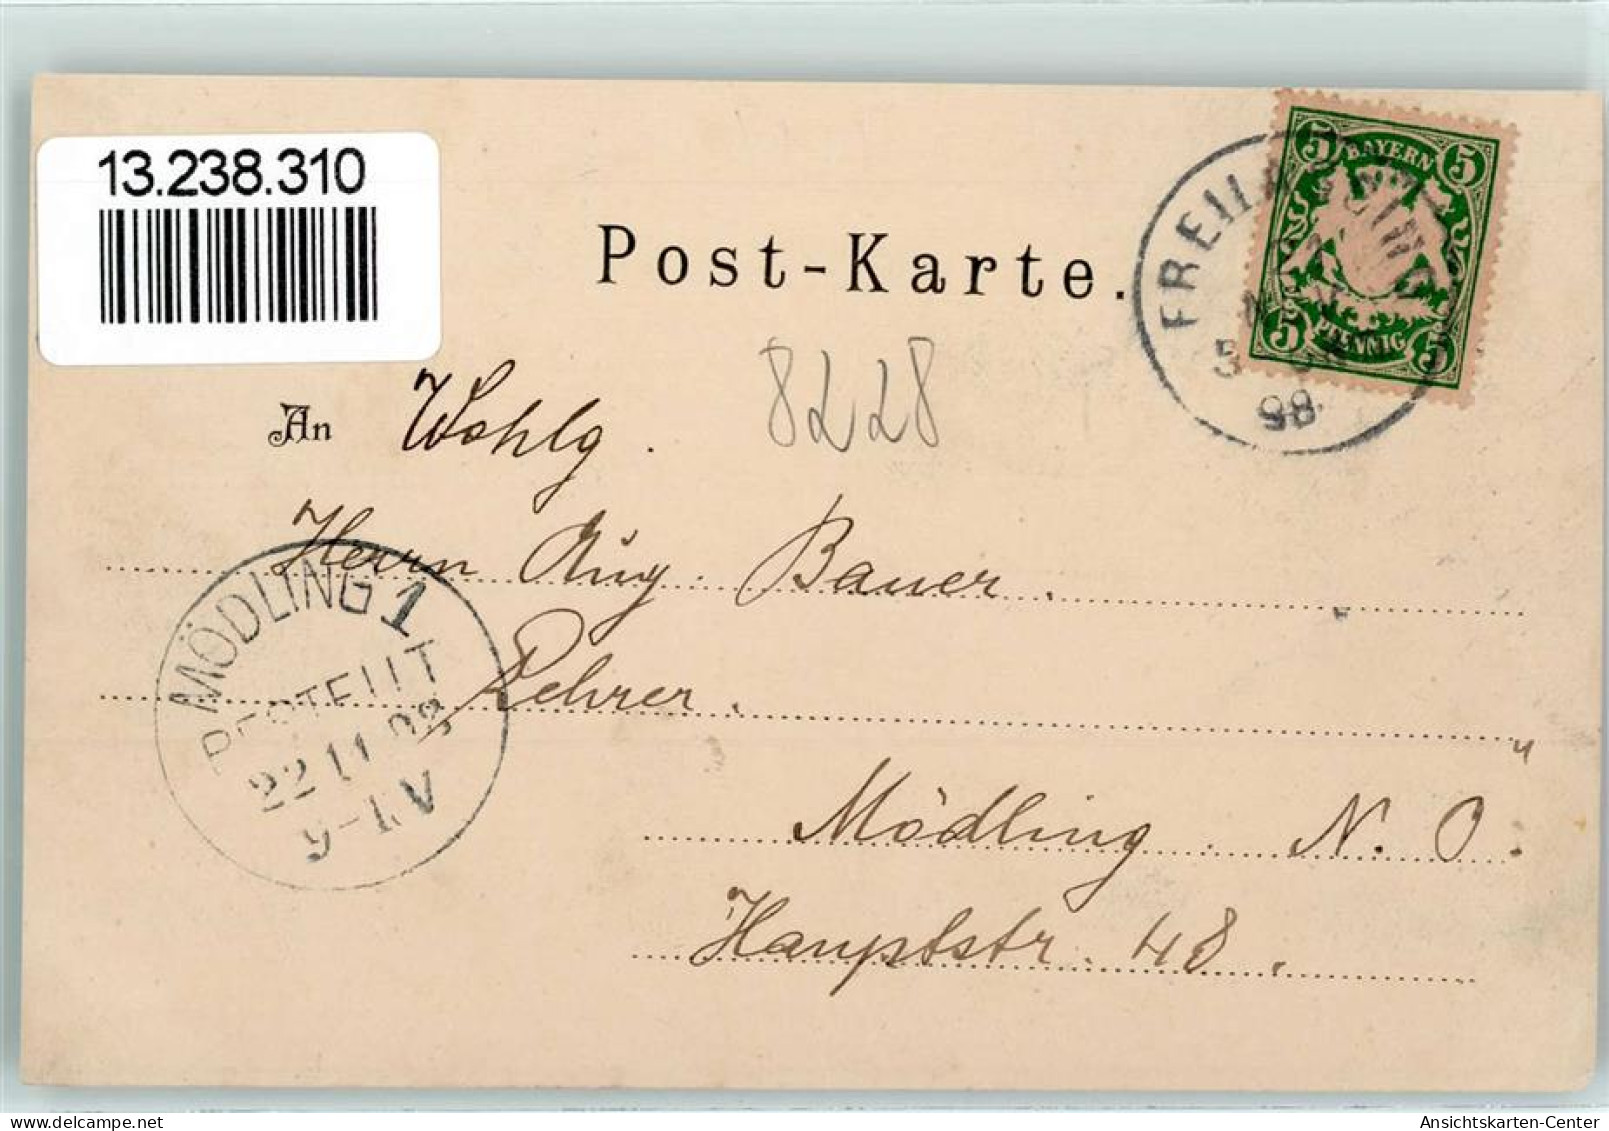 13.238.310
Post-Karte.
5 BAYERN 5
5 PFENNIG 5
98
8228
An Wohlg.
Herrn Aug. Bauer.
Lehrer.
MÖDLING 1
BESTELLT
22 11 98
9-1.V
Mödling N. Ö.
Hauptstr. 48.
Ansichtskarten-Center